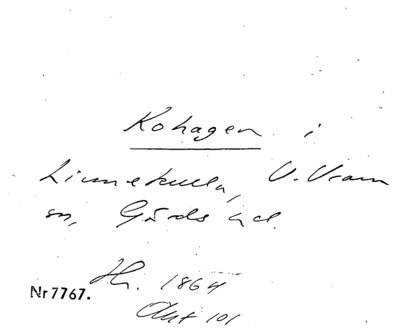 Kohagen i
Linnekulla, V. Vram
sn, Gärds hd.
Hr. 1864
Nr 7767.
Akt 101